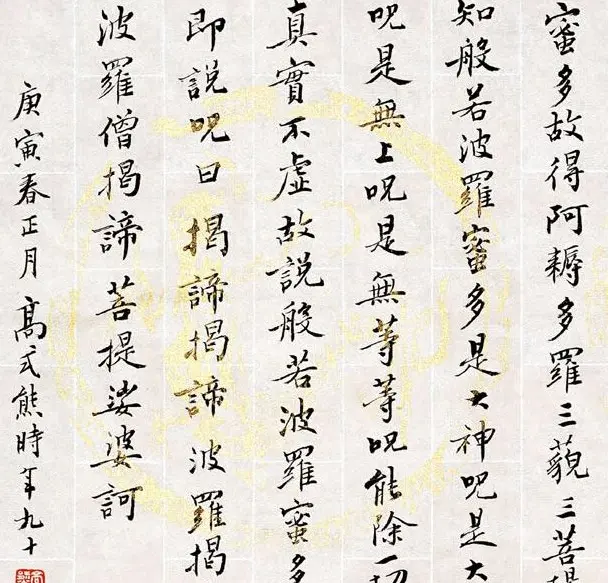 蜜多故得阿耨多羅三藐三菩提
知般若波羅蜜多是大神呪是大
呪是無上呪是無等等呪能除一切
真實不虛故說般若波羅蜜多
即說呪曰揭諦揭諦波羅揭
波羅僧揭諦菩提娑婆訶
庚寅春正月高式熊時年九十